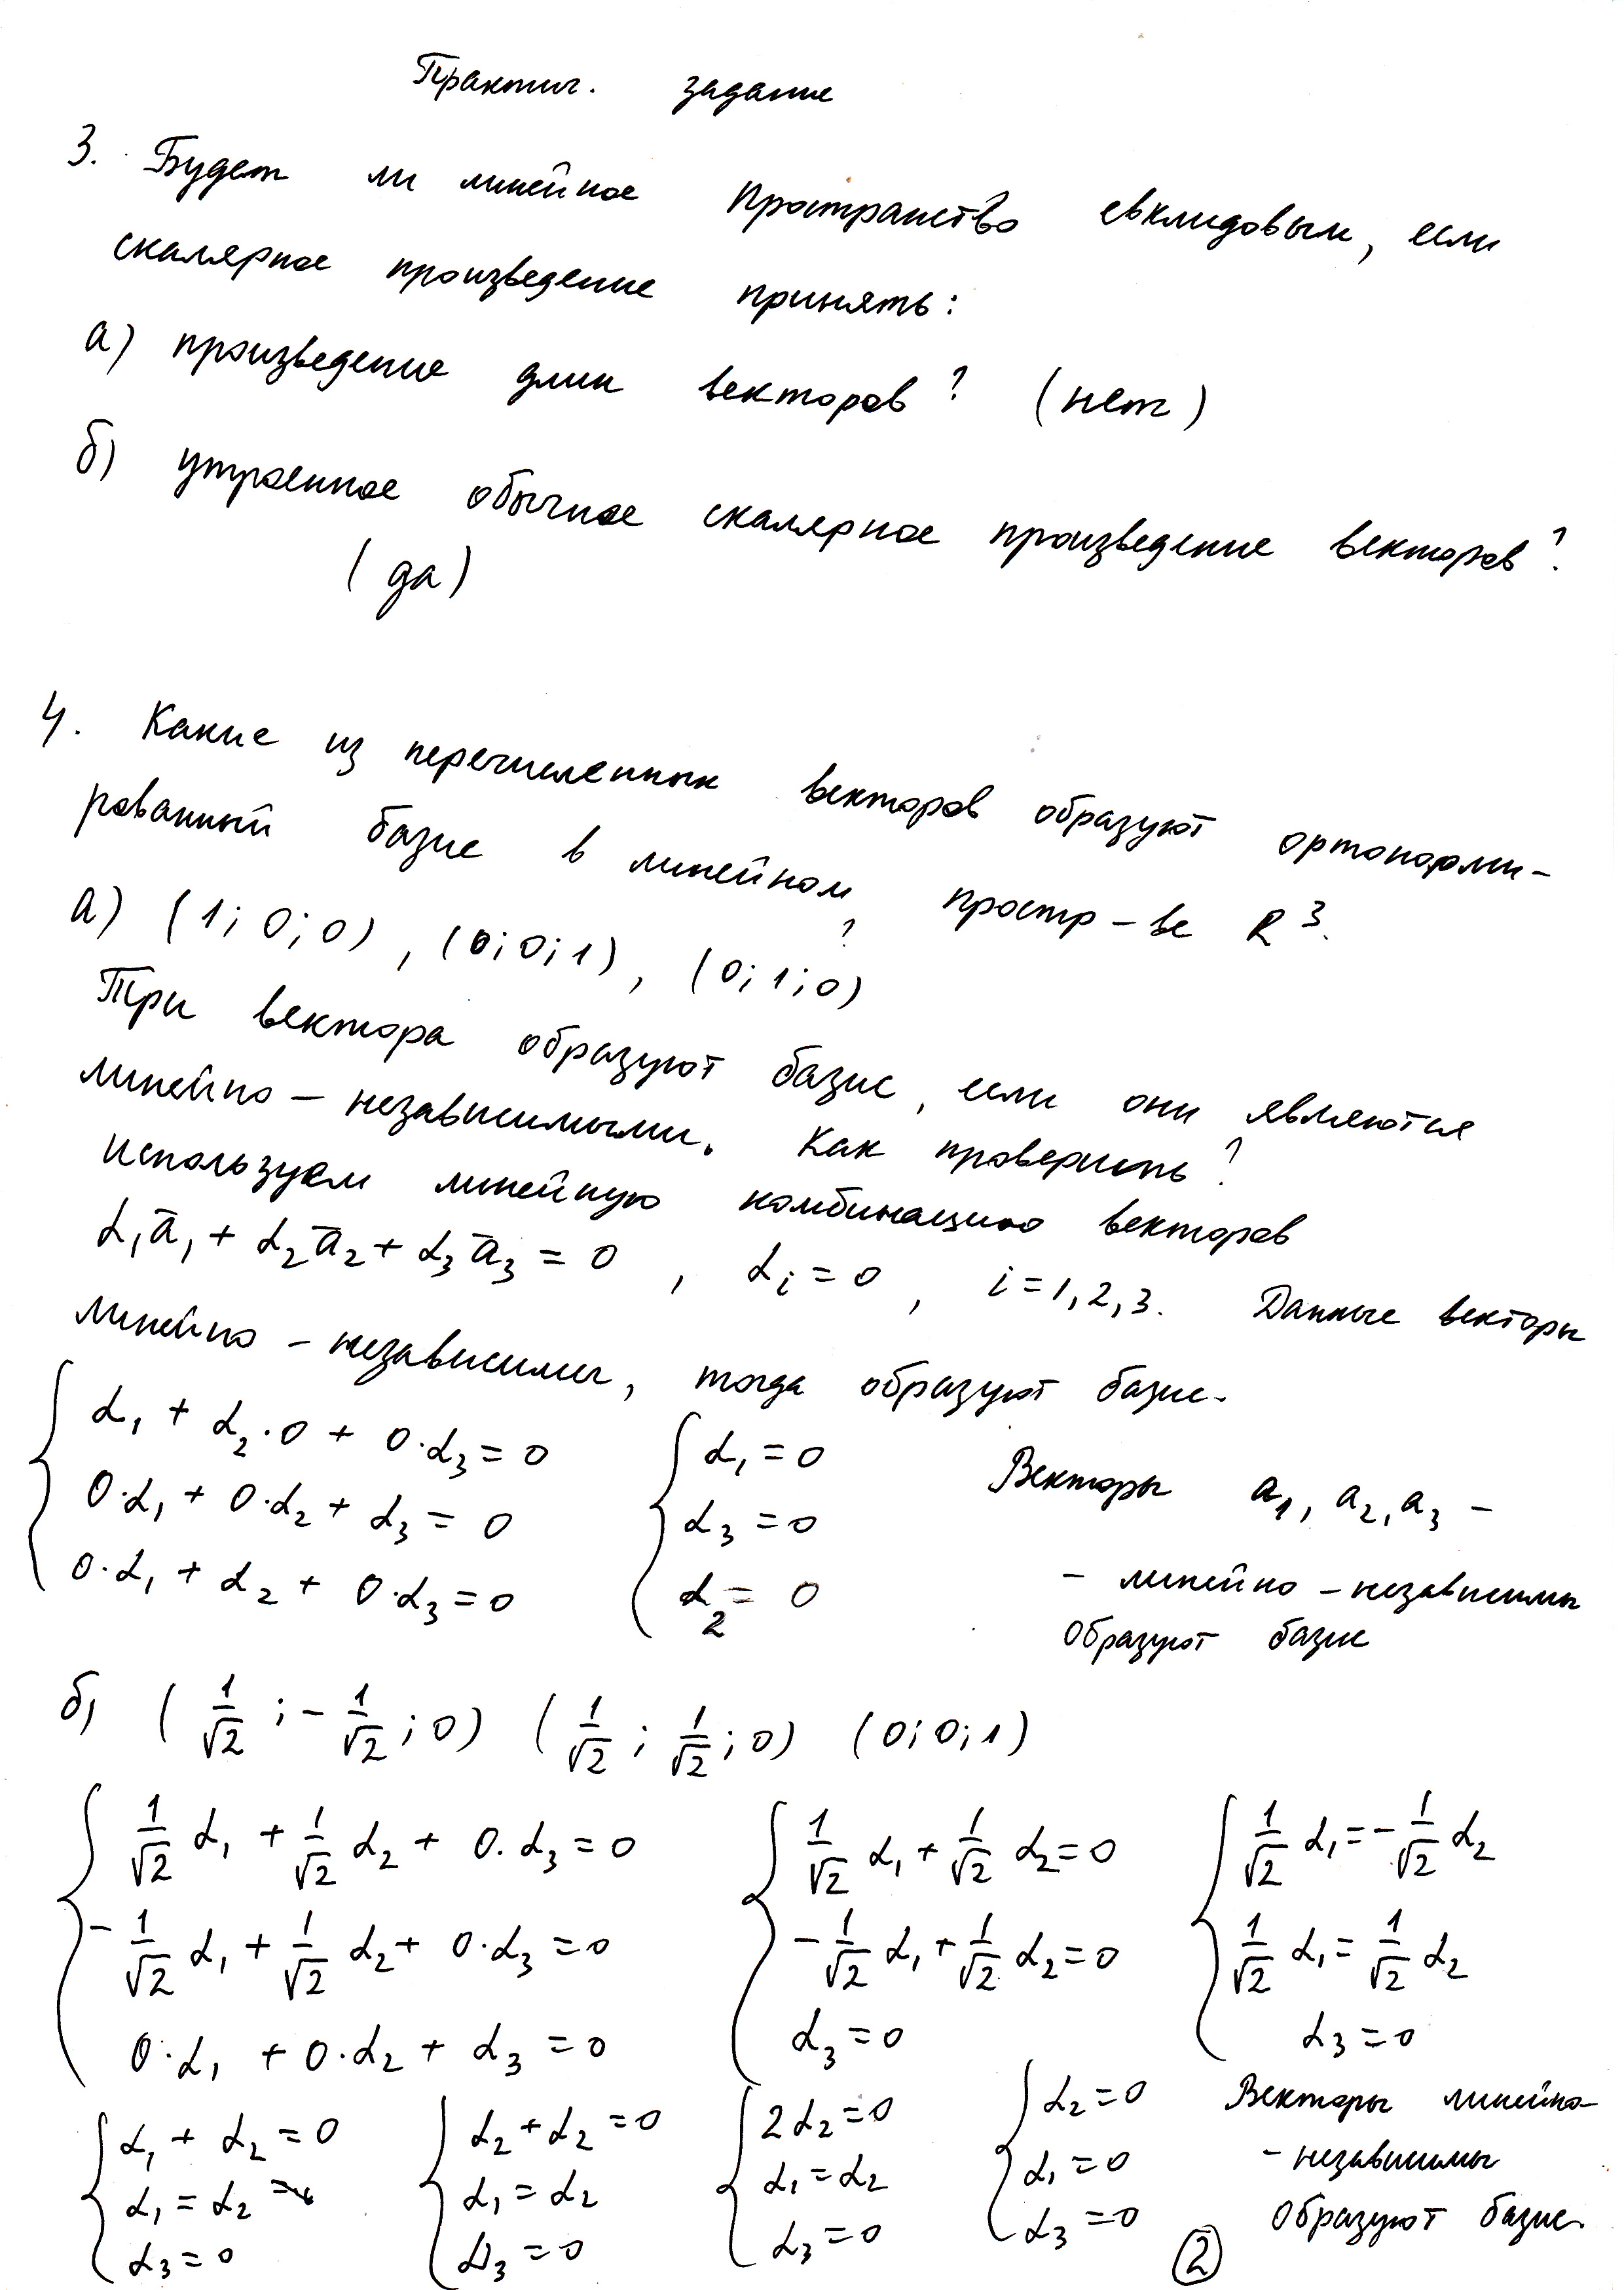 Практич. задание
3. Будет ли линейное пространство евклидовым, если
скалярное произведение принять:
а) произведение длин векторов? (нет)
б) утроенное обычное скалярное произведение векторов?
(да)
4. Какие из перечисленных векторов образуют ортонорми-
рованный базис в линейном простр-ве R³?
а) (1; 0; 0), (0; 0; 1), (0; 1; 0)
Три вектора образуют базис, если они являются
линейно - независимыми. Как проверить?
Используем линейную комбинацию векторов
α₁a̅₁ + α₂a̅₂ + α₃a̅₃ = 0, αᵢ = 0, i = 1, 2, 3. Данные векторы
линейно - независимы, тогда образуют базис.
{ α₁ + α₂·0 + 0·α₃ = 0 { α₁ = 0 Векторы a₁, a₂, a₃ -
0·α₁ + 0·α₂ + α₃ = 0 α₃ = 0 - линейно - независимы
0·α₁ + α₂ + 0·α₃ = 0 α₂ = 0 образуют базис
б) (1/√2; -1/√2; 0) (1/√2; 1/√2; 0) (0; 0; 1)
{ 1/√2 α₁ + 1/√2 α₂ + 0·α₃ = 0 { 1/√2 α₁ + 1/√2 α₂ = 0 { 1/√2 α₁ = -1/√2 α₂
-1/√2 α₁ + 1/√2 α₂ + 0·α₃ = 0 -1/√2 α₁ + 1/√2 α₂ = 0 1/√2 α₁ = 1/√2 α₂
0·α₁ + 0·α₂ + α₃ = 0 α₃ = 0 α₃ = 0
{ α₁ + α₂ = 0 { α₂ + α₂ = 0 { 2α₂ = 0 { α₂ = 0 Векторы линейно-
α₁ = α₂ α₁ = α₂ α₁ = α₂ α₁ = 0 - независимы
α₃ = 0 α₃ = 0 α₃ = 0 α₃ = 0 образуют базис.
2